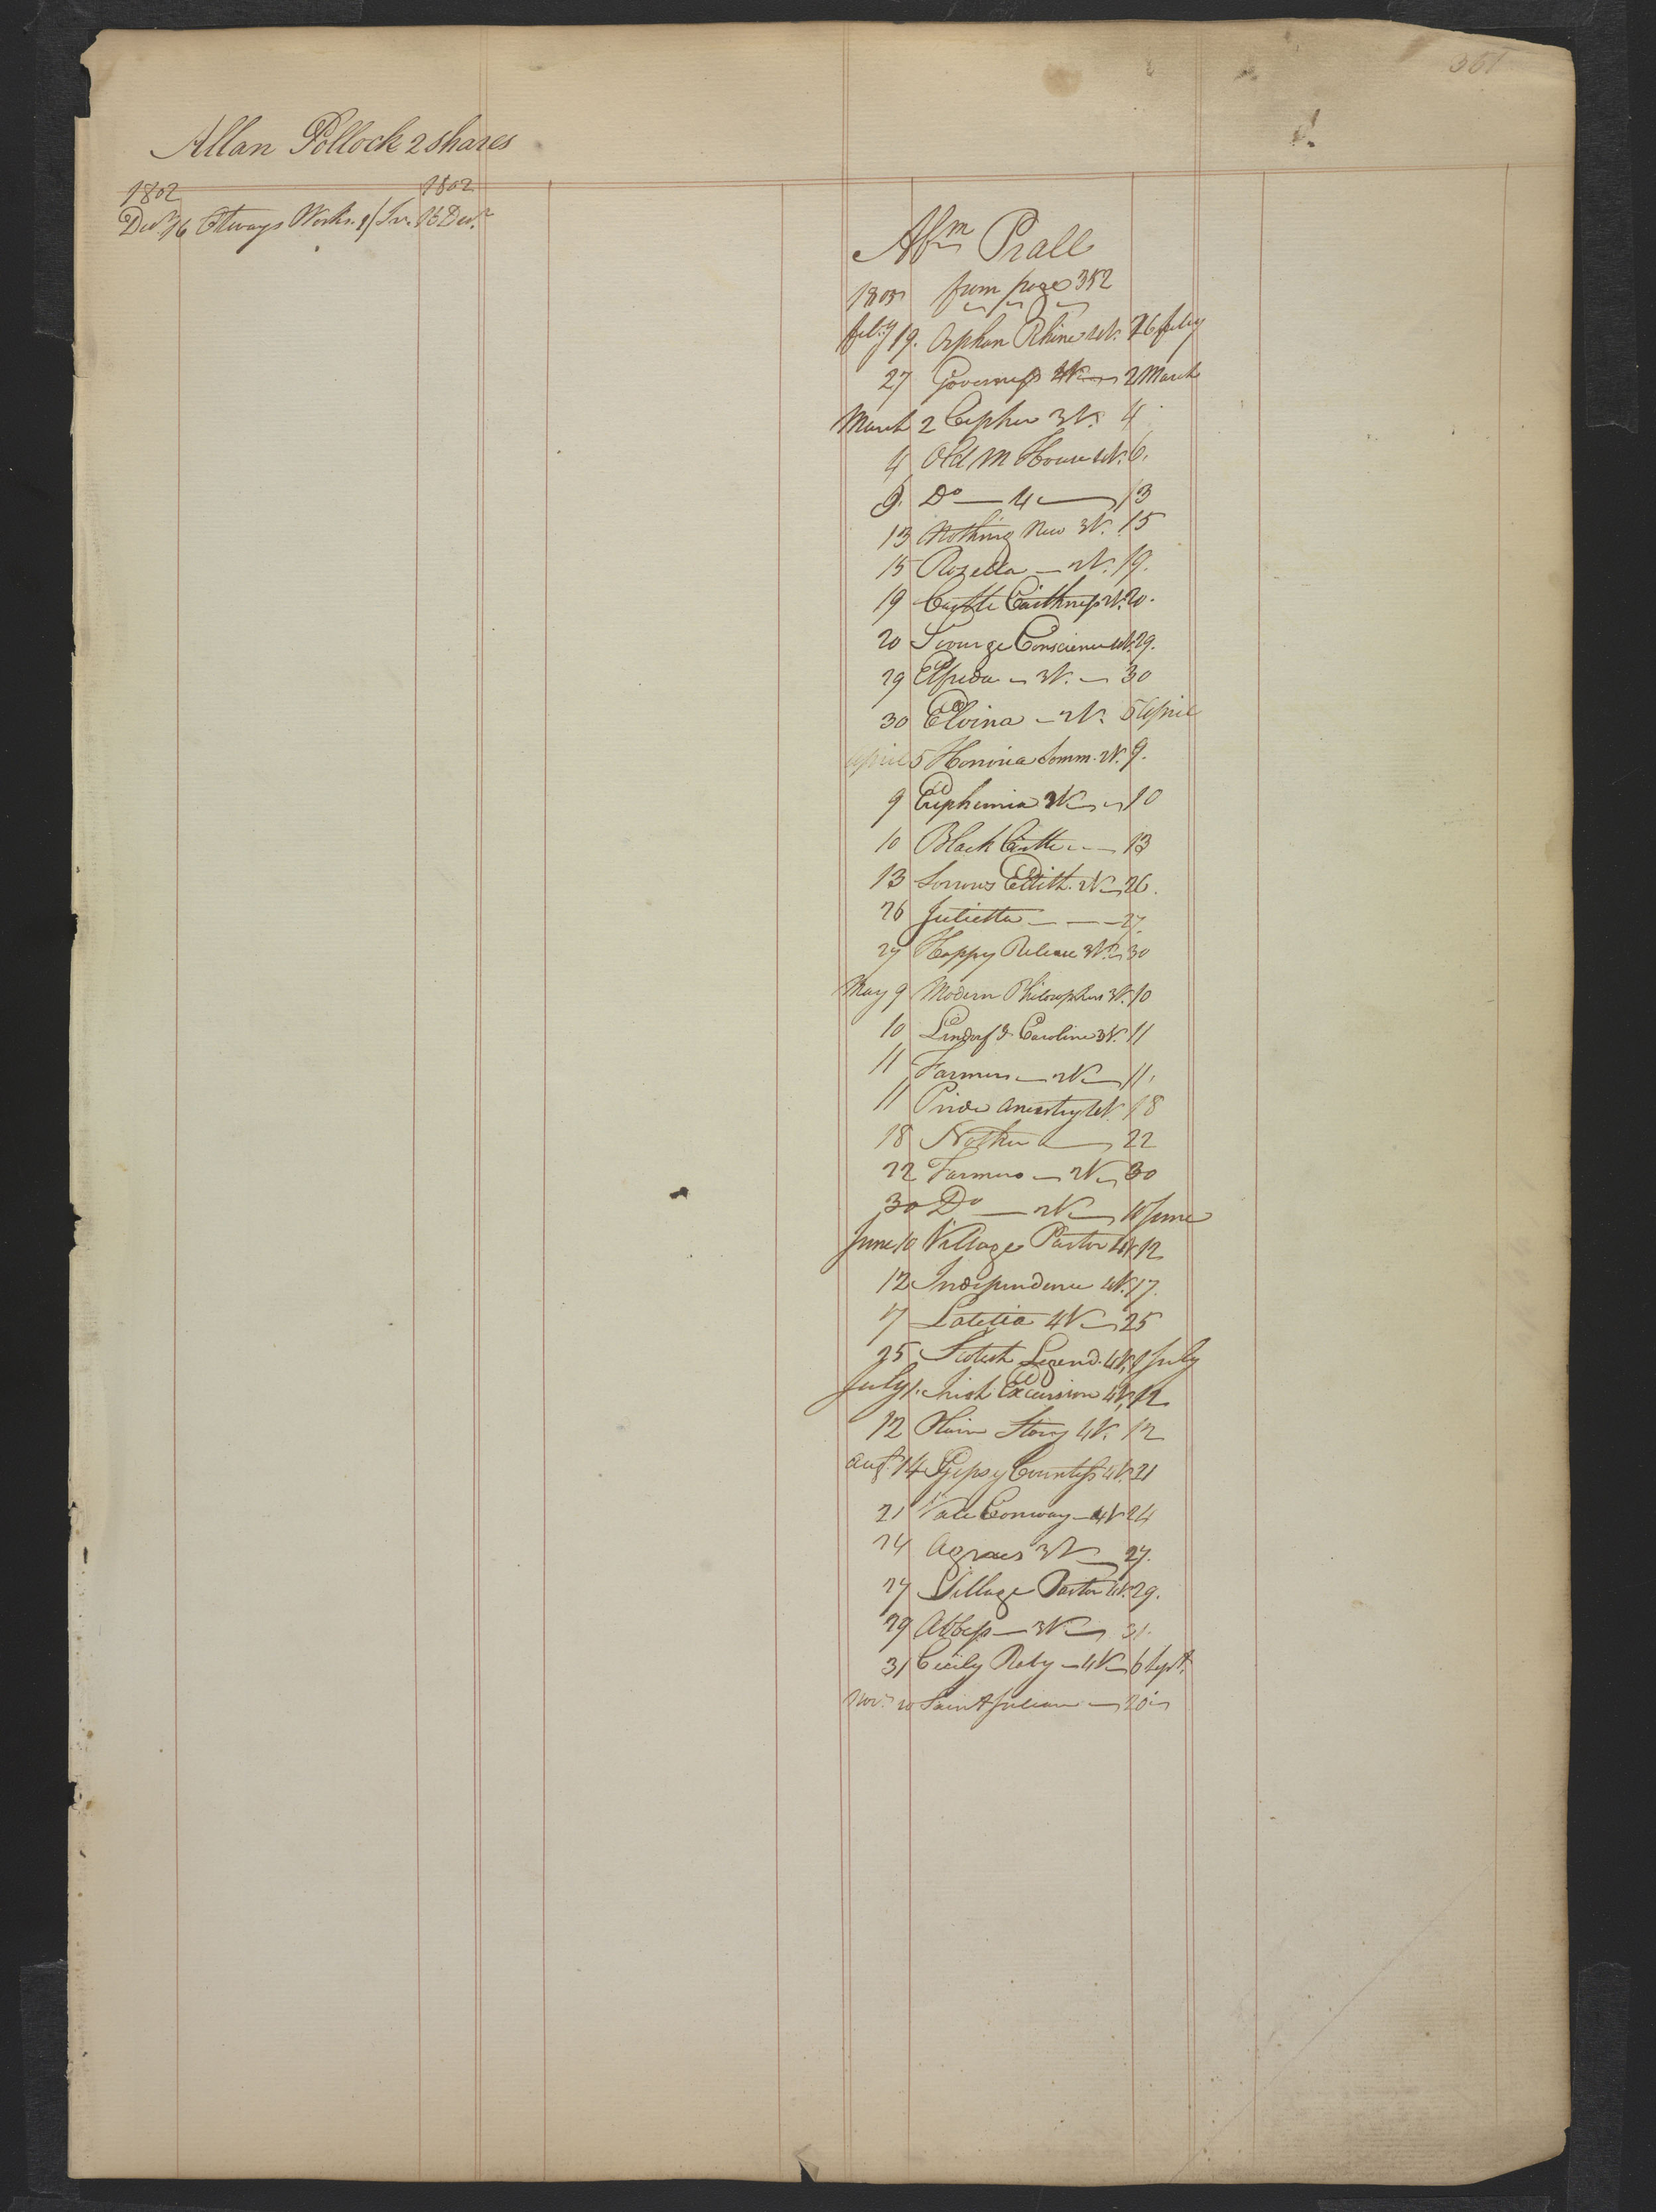 361
Allan Pollock 2 shares
1802 1802
Decr 16 Otways Works. 1/ Sv. 16 Decr
Abm Prall
1805 from page 352
feby 19. Orphan Rhine 4V. 26 feby
27 Governess 4V 2 March
March 2 Cypher 3V. 4
4 Old M House 4V. 6.
9. Do — 4 — 13
13 Nothing New 3V. 15
15 Rozella — 2V. 19.
19 Castle Caithness 2V. 20.
20 Scourge Conscience 4V. 29.
29 Elfrida — 3V. — 30
30 Elvina — 2V. 5 April
April 5 Honoria Somm. 2V. 9.
9 Euphemia 3V — 10
10 Black Castle — 13
13 Sorrows Edith. 2V — 26.
26 Julietta — — — 27.
27 Happy Release 3V. 30
May 9 Modern Philosophers 3V. 10
10 Lindorf & Caroline 3V. 11
11 Farmers — 2V — 11.
11 Pride Ancestry 4V. 18
18 22
22 Farmers — 2V — 30
30 Do — 2V — 10 June
June 10 Village Pastor 4V 12
12 Independence 4V. 17.
17 Latetia 4V — 25
25 Scotish Legend. 4V, 1 July
July 1. Irish Excursion 4V, 12
12 Plain Story 4V. 12
Augt. 14 Gipsy Countess 4V. 21
21 Vale Conway — 4V 24
24 Agnes 3V — 27.
27 Village Pastor 4V. 29.
29 Abbess — 3V — 31.
31 Cecily Raby — 4V — 6 Sept.
Novr. 20 Saint Julian — 20